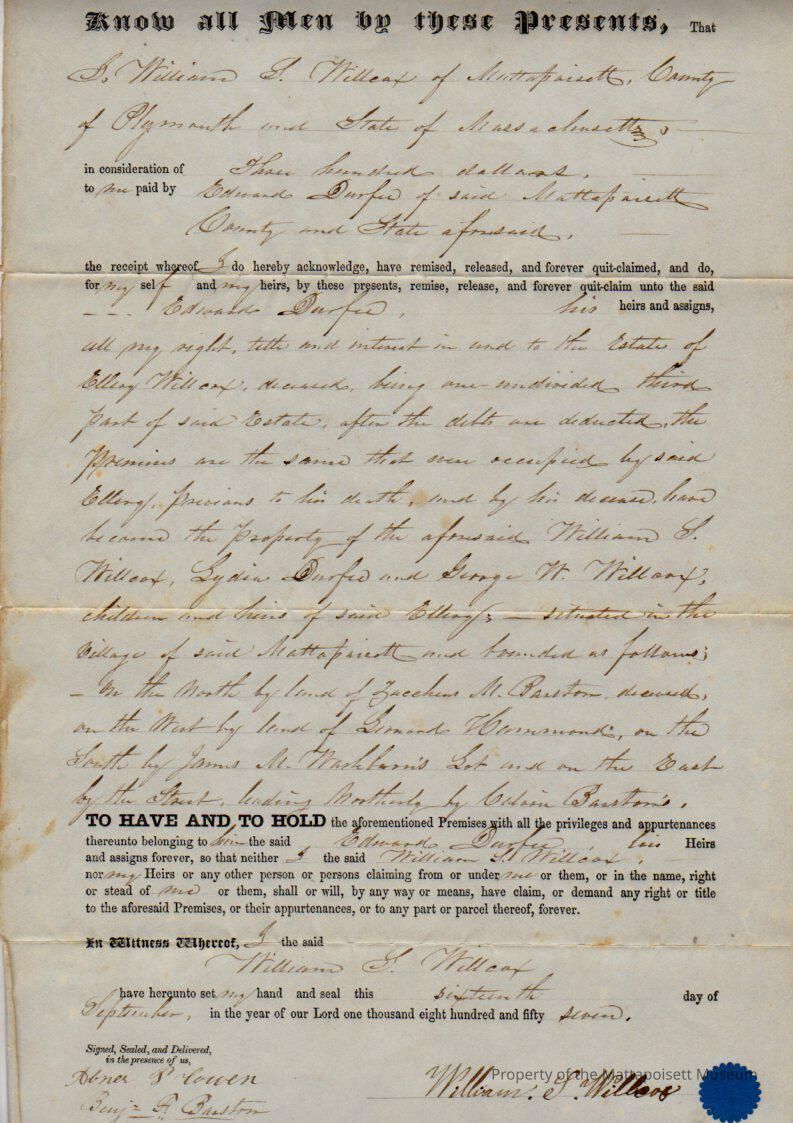 Know all Men by these Presents, That
I, William S. Willcox of Mattapoisett, County
of Plymouth and State of Massachusetts,
in consideration of Three hundred dollars,
to me paid by Edward Durfee of said Mattapoisett
County and State aforesaid,
the receipt whereof I do hereby acknowledge, have remised, released, and forever quit-claimed, and do,
for my self and my heirs, by these presents, remise, release, and forever quit-claim unto the said
Edward Durfee, his heirs and assigns,
all my right, title and interest in and to the Estate of
Ellery Willcox, deceased, being one undivided third
part of said Estate, after the debts are deducted, the
premises are the same that were occupied by said
Ellery, previous to his death, and by his decease, have
become the property of the aforesaid William S.
Willcox, Lydia Durfee and George W. Willcox,
children and heirs of said Ellery; — situated in the
Village of said Mattapoisett and bounded as follows;
– On the North by land of Zaccheus M. Barstow, deceased,
on the West by land of Hammond, on the
South by James M. Washburn's Lot and on the East
by the Street, leading Northerly by Barstow's.
TO HAVE AND TO HOLD the aforementioned Premises with all the privileges and appurtenances
thereunto belonging to him the said Edward Durfee, his Heirs
and assigns forever, so that neither I the said William S. Willcox,
nor my Heirs or any other person or persons claiming from or under me or them, or in the name, right
or stead of me or them, shall or will, by any way or means, have claim, or demand any right or title
to the aforesaid Premises, or their appurtenances, or to any part or parcel thereof, forever.
In Witness Whereof, I the said
William S. Willcox
have hereunto set my hand and seal this sixteenth day of
September, in the year of our Lord one thousand eight hundred and fifty seven.
Signed, Sealed, and Delivered,
in the presence of us,
Abner P. Cowen
Benj= F. Barstow
William. S. Willcox
Property of the Mattapoisett Museum